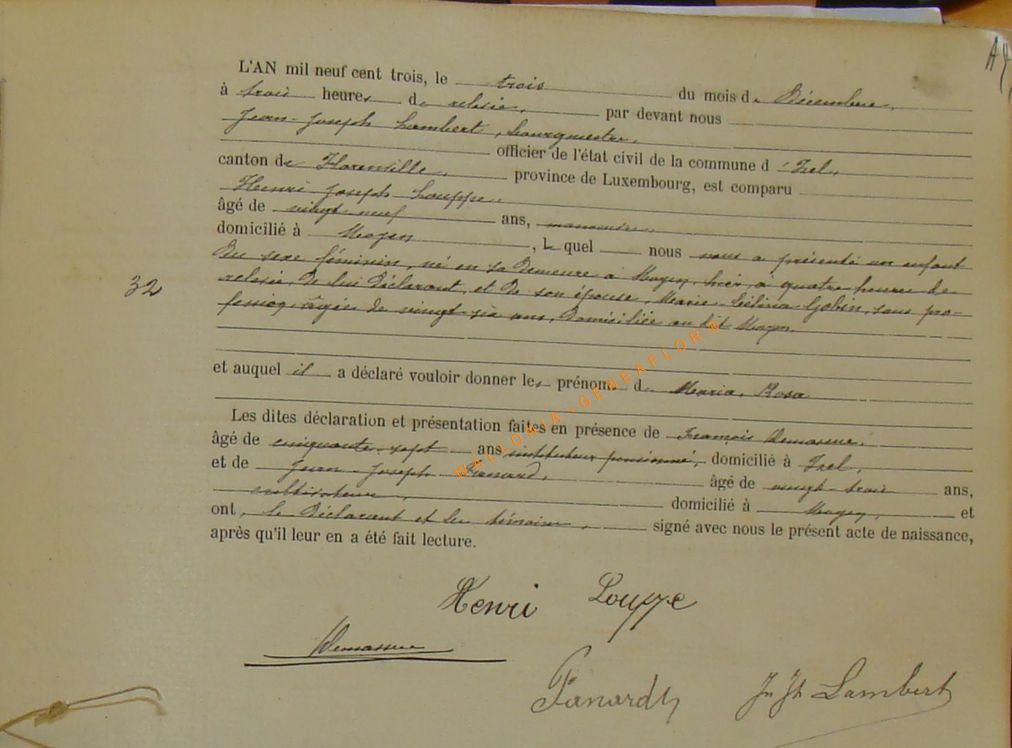 L'AN mil neuf cent trois, le trois du mois de Décembre,
à trois heures de relevée, par devant nous
Jean-Joseph Lambert, bourgmestre,
officier de l'état civil de la commune d'Izel,
canton de Florenville, province de Luxembourg, est comparu
Henri Joseph Louppe,
âgé de vingt-neuf ans, manoeuvre,
domicilié à Moyen, Lequel nous nous a présenté un enfant
du sexe féminin, né en sa demeure à Moyen, hier, à quatre heures de
32
relevée, de lui déclarant, et de son épouse, Marie-Célina Gobin, sans pro-
fession, âgée de vingt-six ans, domiciliée au dit Moyen
et auquel il a déclaré vouloir donner les prénoms de Maria, Rosa
Les dites déclaration et présentation faites en présence de François Demasure,
âgé de cinquante-sept ans instituteur pensionné, domicilié à Izel,
et de Jean-Joseph Panard, âgé de vingt-trois ans,
cultivateur, domicilié à Moyen, et
ont, le déclarant et les témoins, signé avec nous le présent acte de naissance,
après qu'il leur en a été fait lecture.
Henri Louppe
Panard Jn Jh Lambert
WALLONIA-GENEAFLOR